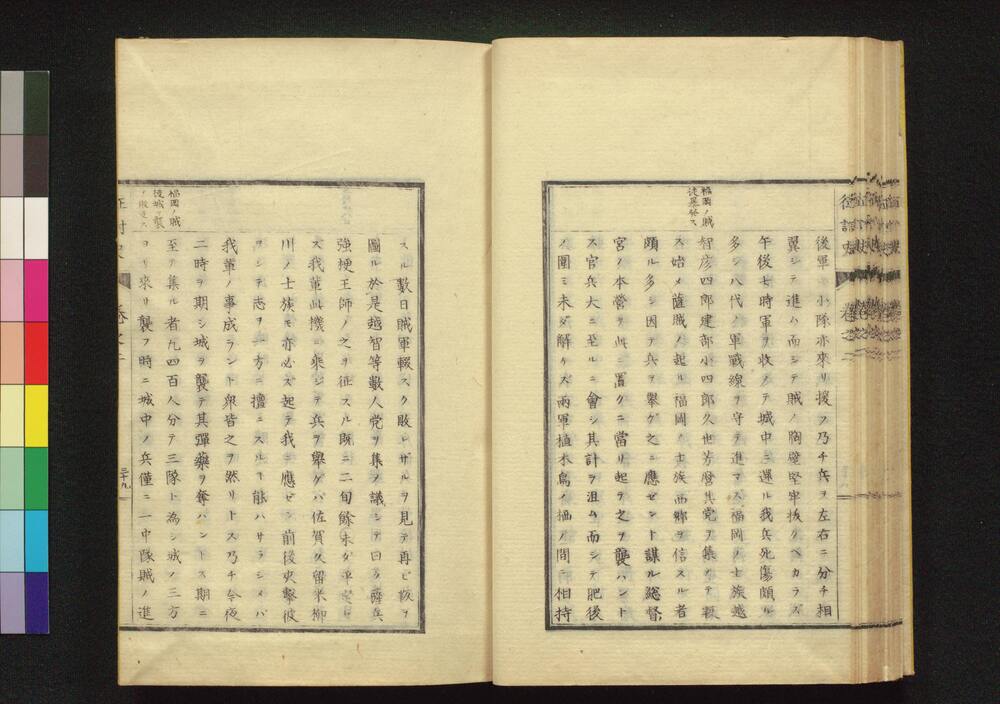 福岡ノ賊
徒暴發ス
後軍ノ小隊亦來リ援フ乃チ兵ヲ左右ニ分チ相
翼シテ進ム而シテ賊ノ胸壁堅牢拔クベカラズ
午後七時軍ヲ收メテ城中ニ還ル我兵死傷頗ル
多シ八代ノ軍戰線ヲ守テ進マズ福岡ノ士族越
智彦四郎建部小四郎久世芳麿其党ヲ集メテ叛
ス始メ薩賊ノ起ル福岡ノ士族西郷ヲ信スル者
頗ル多シ因テ兵ヲ擧ゲ之ニ應ゼント謀ル總督
宮ノ本營ヲ此ニ置クニ當リ起テ之ヲ襲ハント
ス官兵大ニ至ルニ會シ其計ヲ沮ム而シテ肥後
ノ圍ミ未ダ解ケズ兩軍植木鳥ノ栖ノ間ニ相持
福岡ノ賊
徒城ヲ襲
スル數日賊軍輙スク敗レザルヲ見テ再ビ叛ヲ
圖ル於是越智等數人党ヲ集メ議シテ曰ク薩兵
強梗王師ノ之ヲ征スル既ニ二旬餘未ダ平定セ
ス我輩此機ニ乘シテ兵ヲ擧ゲバ佐賀久留米柳
川ノ士族モ亦必ズ起テ我ニ應ゼン前後夾擊彼
ヲシテ志ヲ一方ニ擅ニスルヿ能ハサラシメバ
我輩ノ事成ラント衆皆之ヲ然リトス乃チ今夜
二時ヲ期シ城ヲ襲テ其彈藥ヲ奪ハントス期ニ
至テ集ル者凡四百人分テ三隊ト為シ城ノ三方
ヨリ來リ襲フ時ニ城中ノ兵僅ニ一中隊賊ノ進
三十九